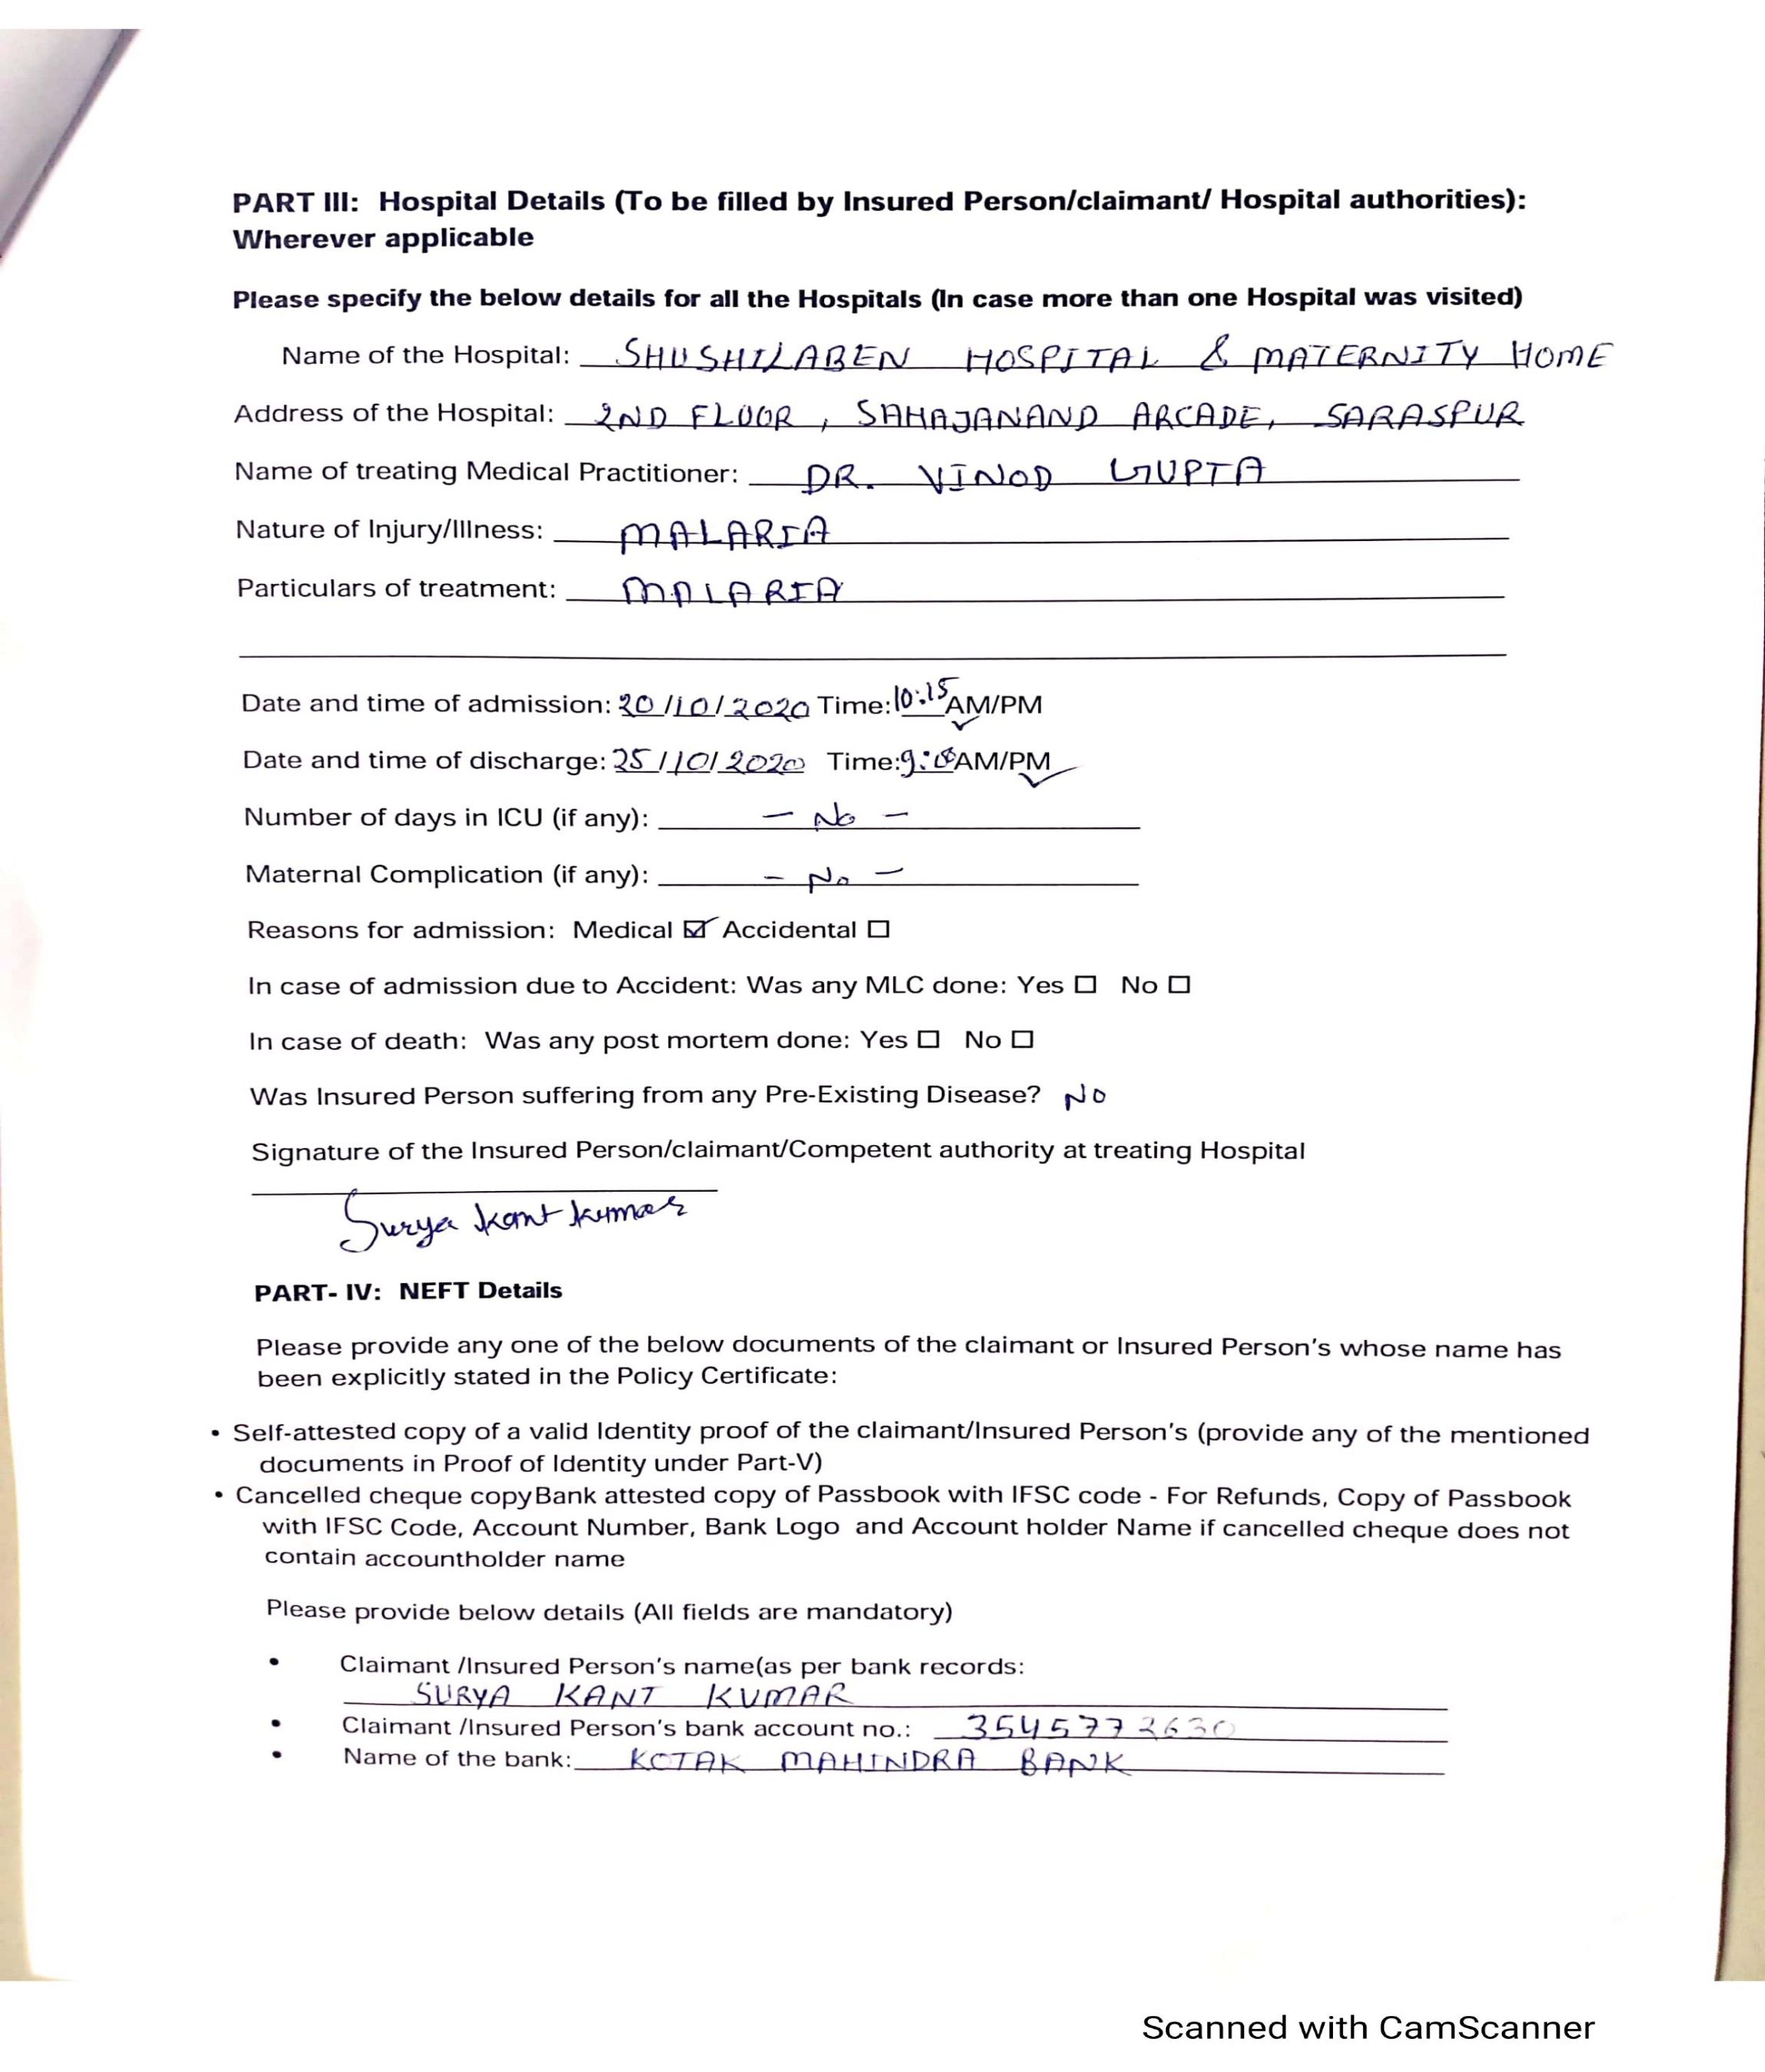 PART III: Hospital Details (To be filled by Insured Person/claimant/ Hospital authorities):
Wherever applicable
Please specify the below details for all the Hospitals (In case more than one Hospital was visited)
Name of the Hospital: SHUSHILABEN HOSPITAL & MATERNITY HOME
Address of the Hospital: 2ND FLOOR, SAHAJANAND ARCADE, SARASPUR
Name of treating Medical Practitioner: DR. VINOD GUPTA
Nature of Injury/Illness: MALARIA
Particulars of treatment: MALARIA
Date and time of admission: 20/10/2020 Time: 10:15 AM/PM
Date and time of discharge: 25/10/2020 Time: AM/PM
Number of days in ICU (if any): - No -
Maternal Complication (if any): - No -
Reasons for admission: Medical ☑ Accidental ☐
In case of admission due to Accident: Was any MLC done: Yes ☐ No ☐
In case of death: Was any post mortem done: Yes ☐ No ☐
Was Insured Person suffering from any Pre-Existing Disease? NO
Signature of the Insured Person/claimant/Competent authority at treating Hospital
Surya Kant Kumar
PART- IV: NEFT Details
Please provide any one of the below documents of the claimant or Insured Person's whose name has
been explicitly stated in the Policy Certificate:
• Self-attested copy of a valid Identity proof of the claimant/Insured Person's (provide any of the mentioned
documents in Proof of Identity under Part-V)
• Cancelled cheque copy Bank attested copy of Passbook with IFSC code - For Refunds, Copy of Passbook
with IFSC Code, Account Number, Bank Logo and Account holder Name if cancelled cheque does not
contain accountholder name
Please provide below details (All fields are mandatory)
• Claimant /Insured Person's name(as per bank records:
SURYA KANT KUMAR
• Claimant /Insured Person's bank account no.: 3545772630
• Name of the bank: KOTAK MAHINDRA BANK
Scanned with CamScanner